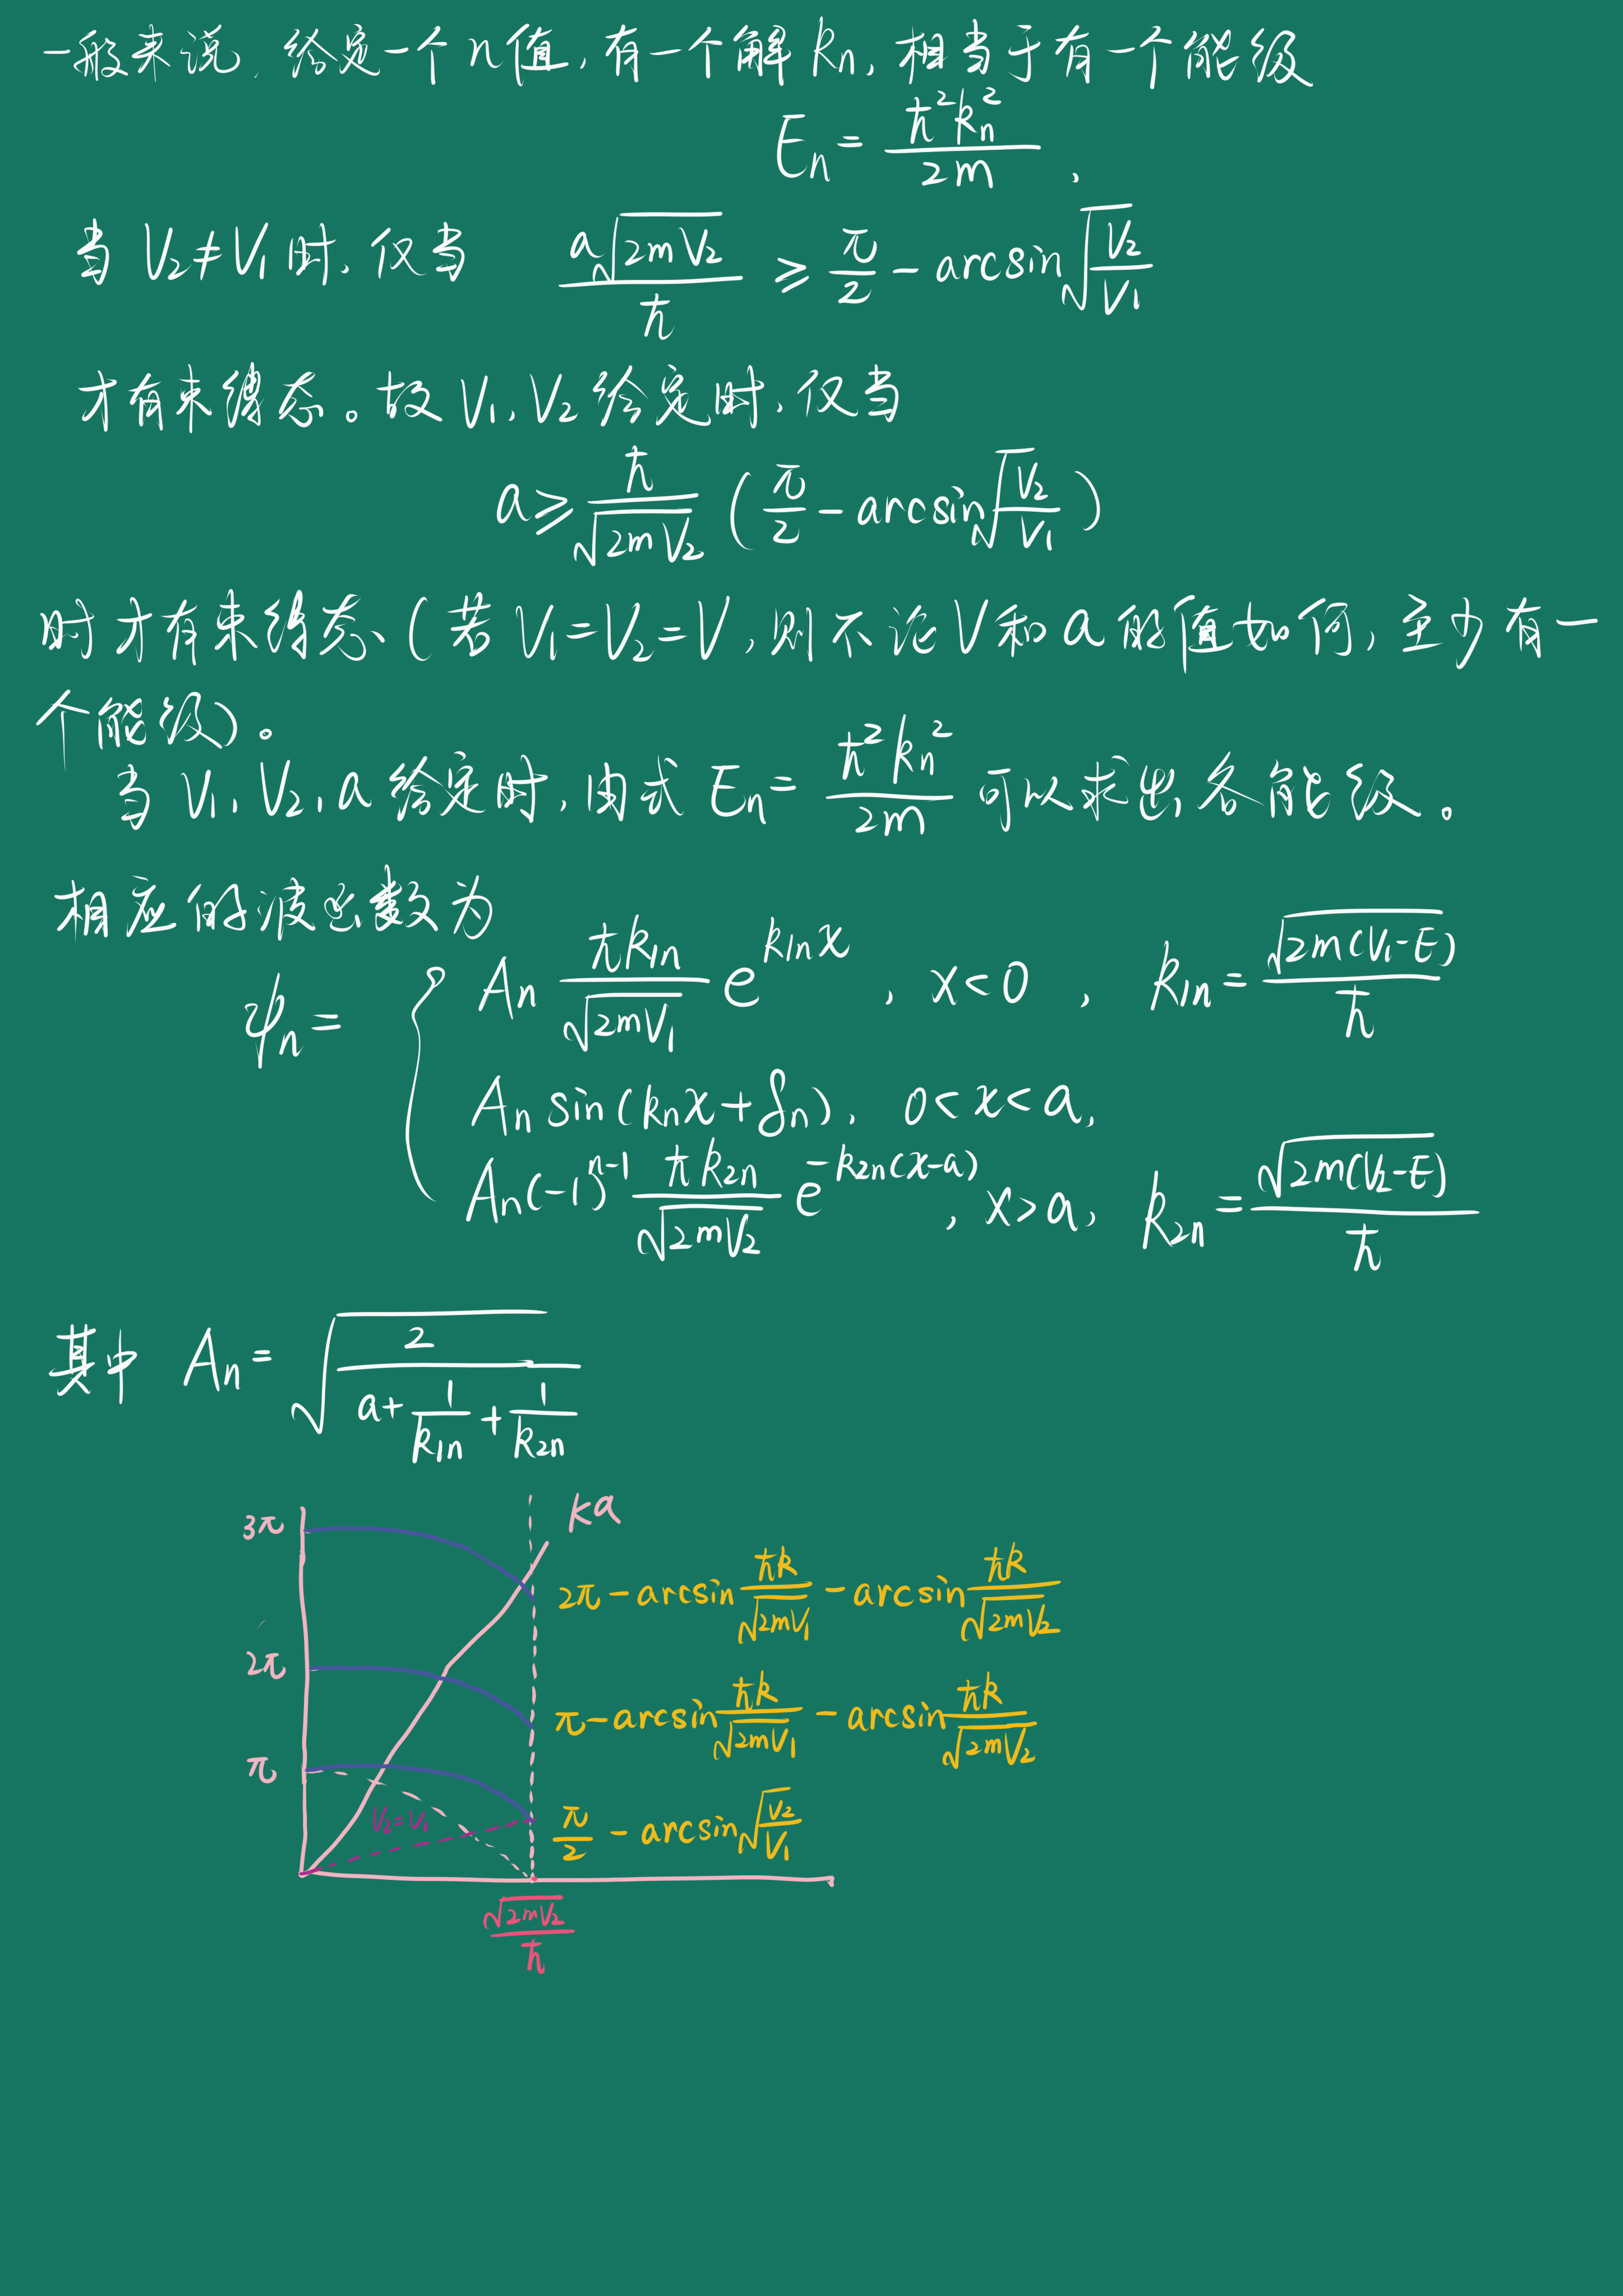 一般来说, 给定一个 n 值, 有一个解 kn, 相当于有一个能级
En = ħ²kn²/2m ,
当 V2≠V1 时, 仅当 a√(2mV2)/ħ ≥ π/2 - arcsin√(V2/V1)
才有束缚态。故 V1, V2 给定时, 仅当
a ≥ ħ/√(2mV2) (π/2 - arcsin√(V2/V1))
时才有束缚态 (若 V1=V2=V, 则不论 V 和 a 的值如何, 至少有一
个能级)。
当 V1, V2, a 给定时, 由式 En = ħ²kn²/2m 可以求出各能级。
相应的波函数为
ψn = {
An ħk1n/√(2mV1) e^(k1nx) , x<0 , k1n = √(2m(V1-E))/ħ
An sin(knx+δn), 0<x<a,
An(-1)^(n-1) ħk2n/√(2mV2) e^(-k2n(x-a)) , x>a, k2n = √(2m(V2-E))/ħ
其中 An = √(2/(a+1/k1n+1/k2n))
ka
3π
2π - arcsin ħk/√(2mV1) - arcsin ħk/√(2mV2)
2π
π - arcsin ħk/√(2mV1) - arcsin ħk/√(2mV2)
π
V2=V1
π/2 - arcsin√(V2/V1)
√(2mV2)/ħ